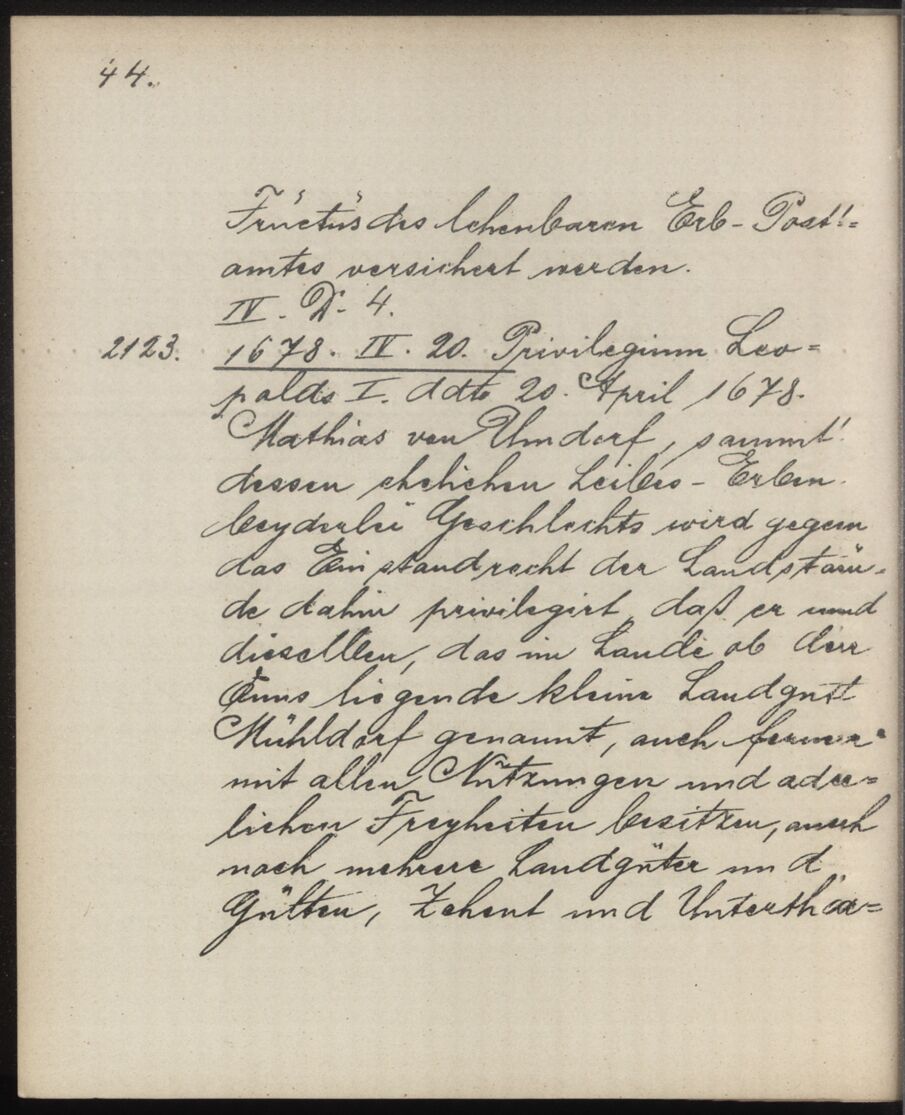 44.
Früctüs des lehenbaren Erb-Post=
amtes versichert werden.
IV. D. 4.
2123. 1678. IV. 20. Privilegium Leo=
polds I. ddto 20. April 1678.
Mathias von Umdorf, sammt
dessen ehelichen Leibes-Erben
beyderlei Geschlechts wird gegen
das Einstandrecht der Landstän=
de dahin privilegirt, daß er und
dieselben, das im Lande ob der
Enns liegende kleine Landgutt
Mühldorf genannt, auch ferner
mit allen Nützungen und ade=
lichen Freyheiten besitzen, auch
noch mehrere Landgüter und
Gülten, Zehent und Untertha=